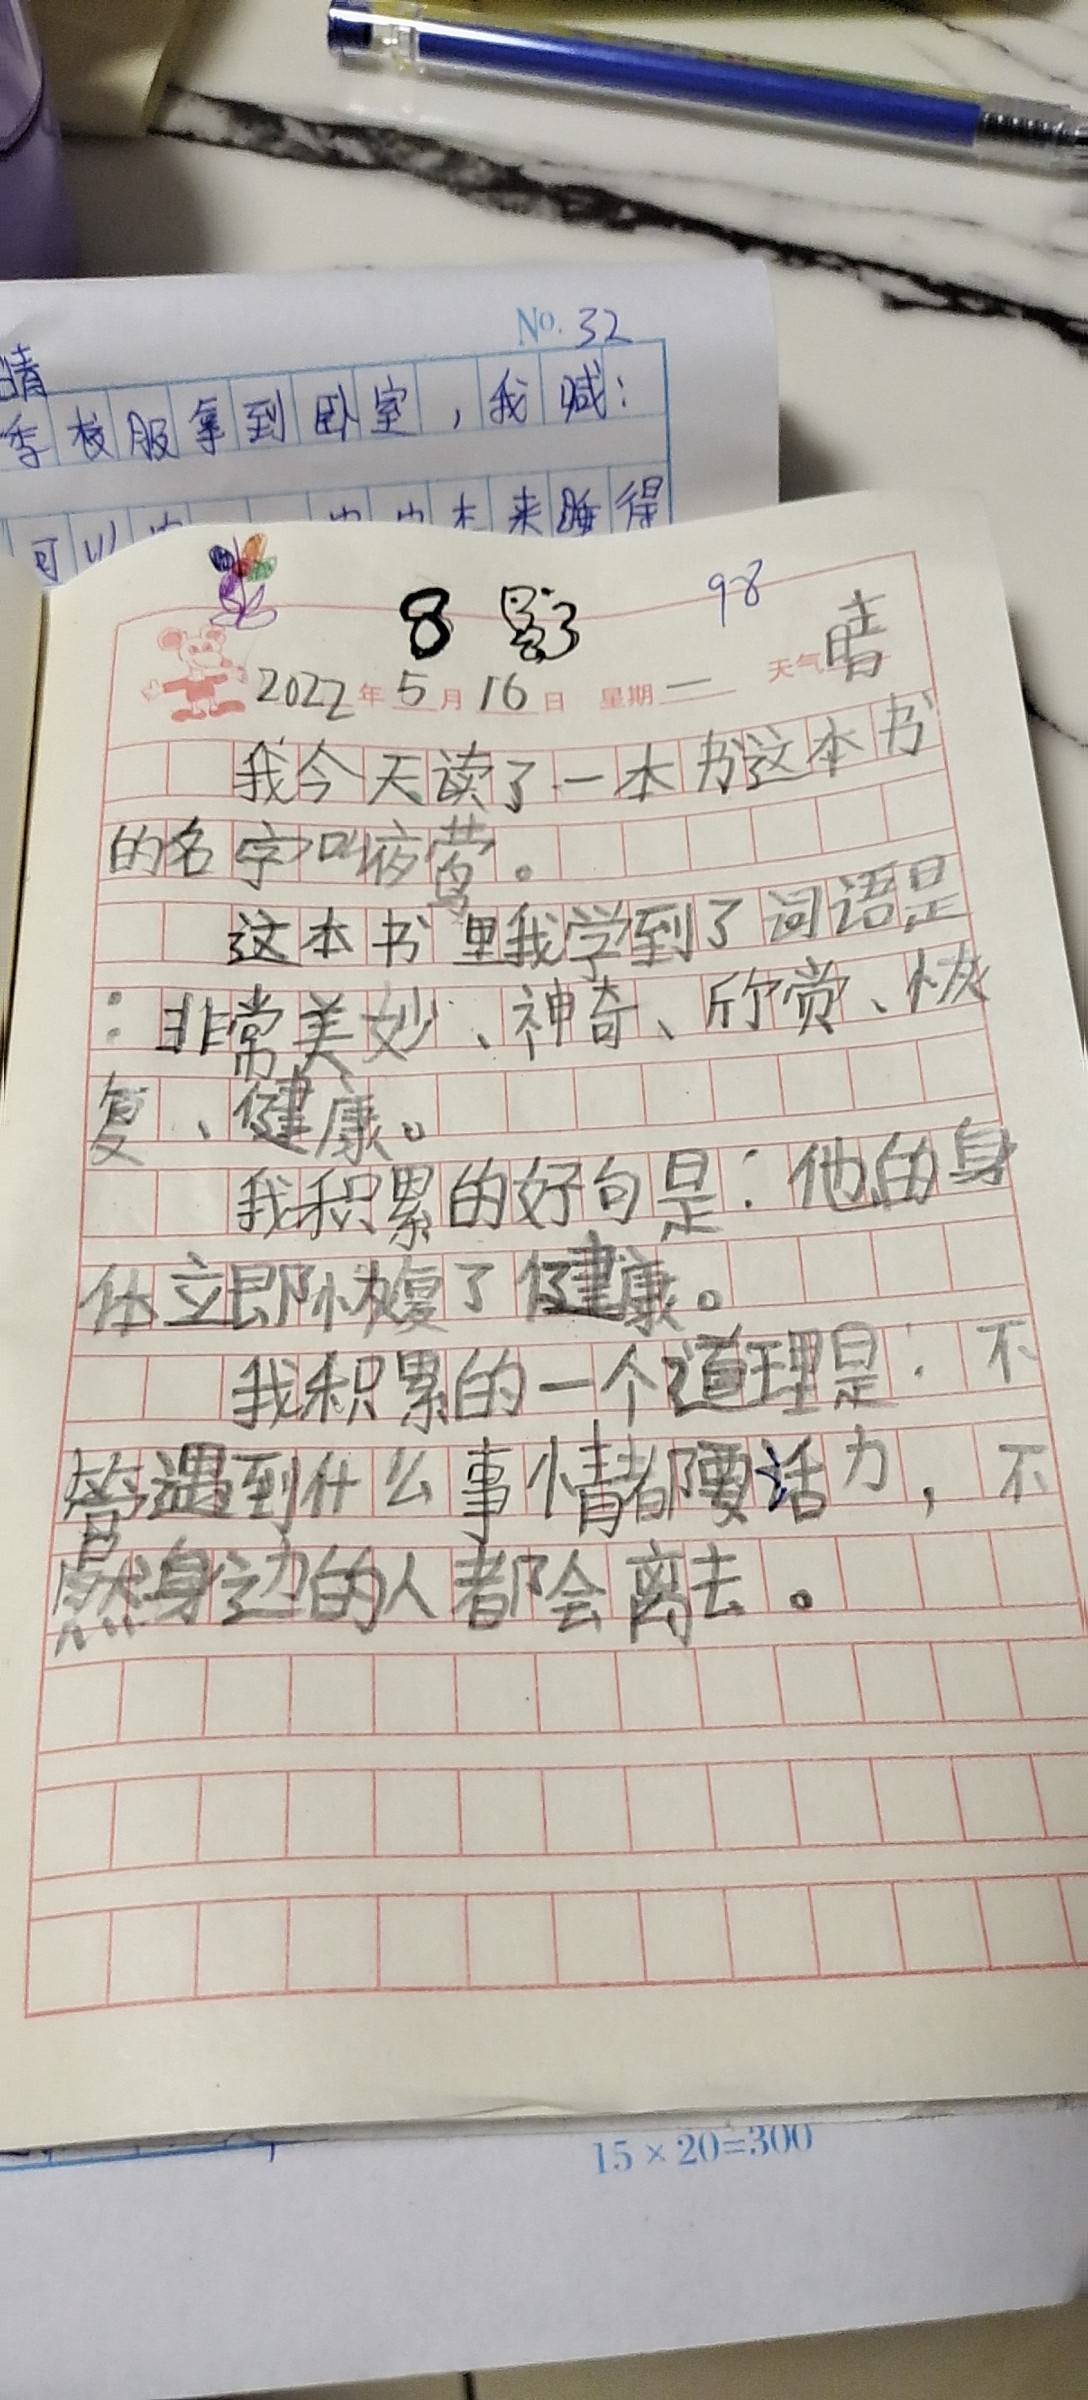 No. 32
晴
季校服拿到卧室，我喊：
可以 来睡得
8 98
2022年5月16日 星期一 天气晴
我今天读了一本书这本书
的名字叫夜莺。
这本书里我学到了词语是
：非常美妙、神奇、欣赏、恢
复、健康。
我积累的好句是：他的身
体立即恢复了健康。
我积累的一个道理是：不
管遇到什么事情都要话力，不
然身边的人都会离去。
15×20=300